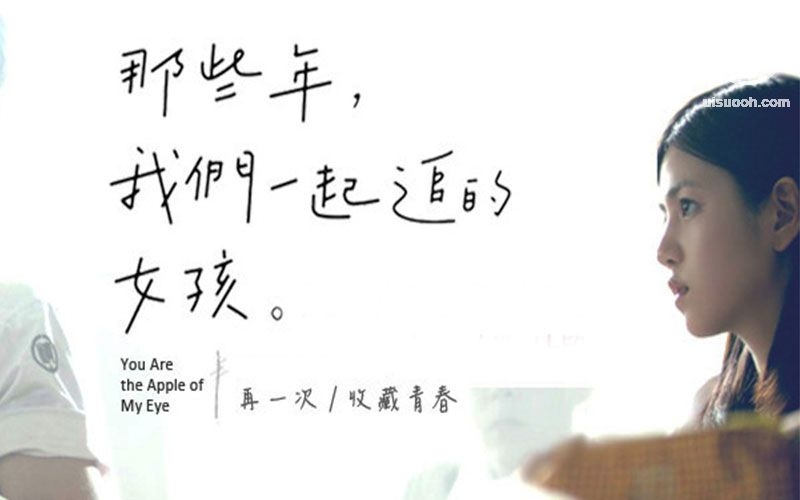 那些年，
uisuooh.com
我們一起追的
女孩。
You Are
the Apple of
My Eye
再一次 / 收藏青春